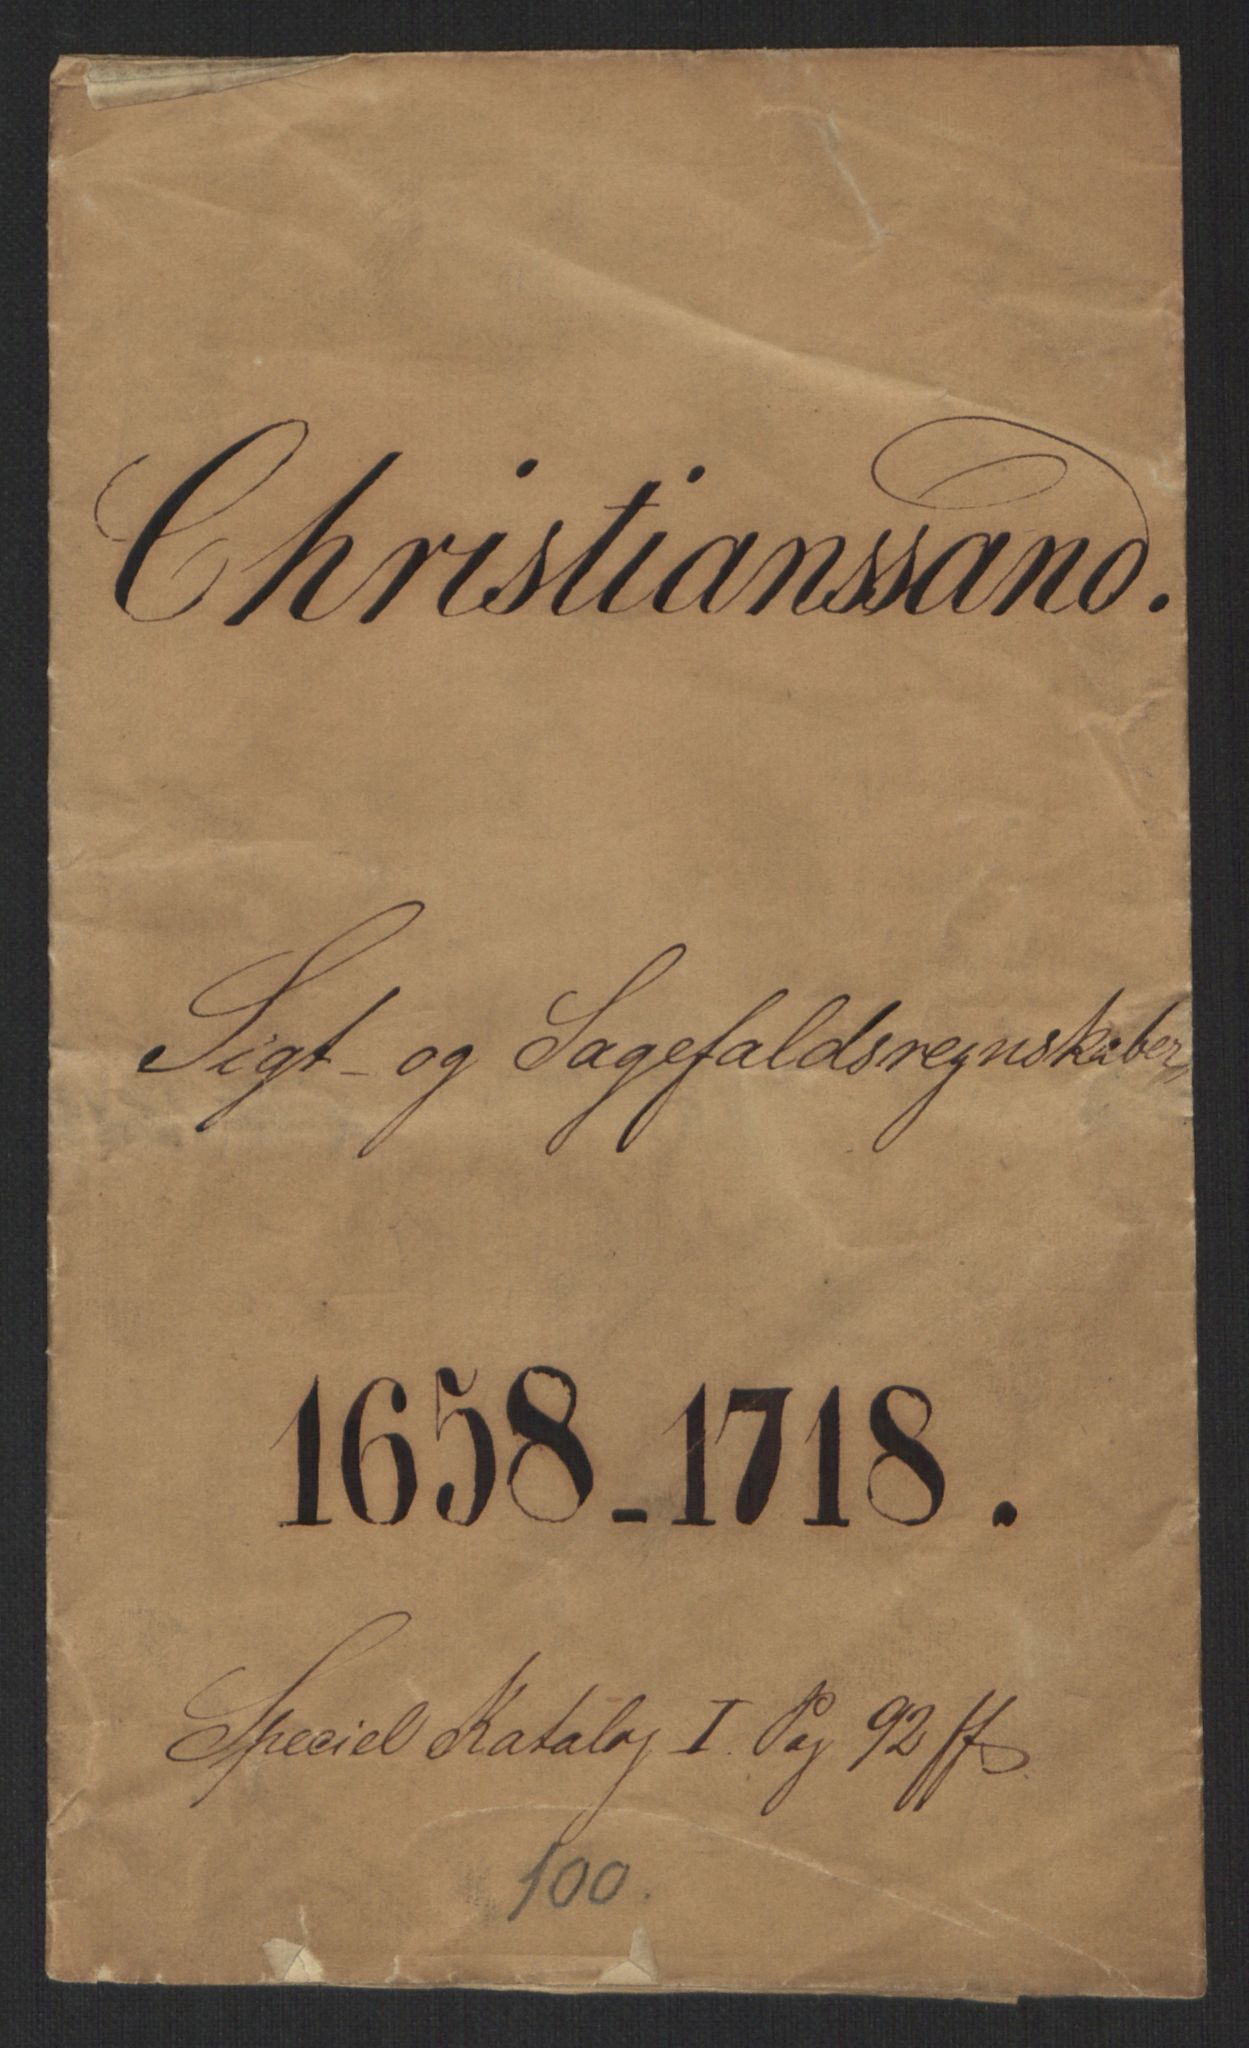 Christianssand.
Sigt- og Sagefaldsregnskaber,
1658-1718.
Speciel Katalog I. Pag 92 ff.
100.